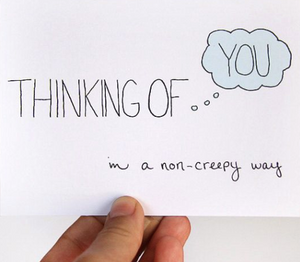 THINKING OF... YOU
in a non-creepy way